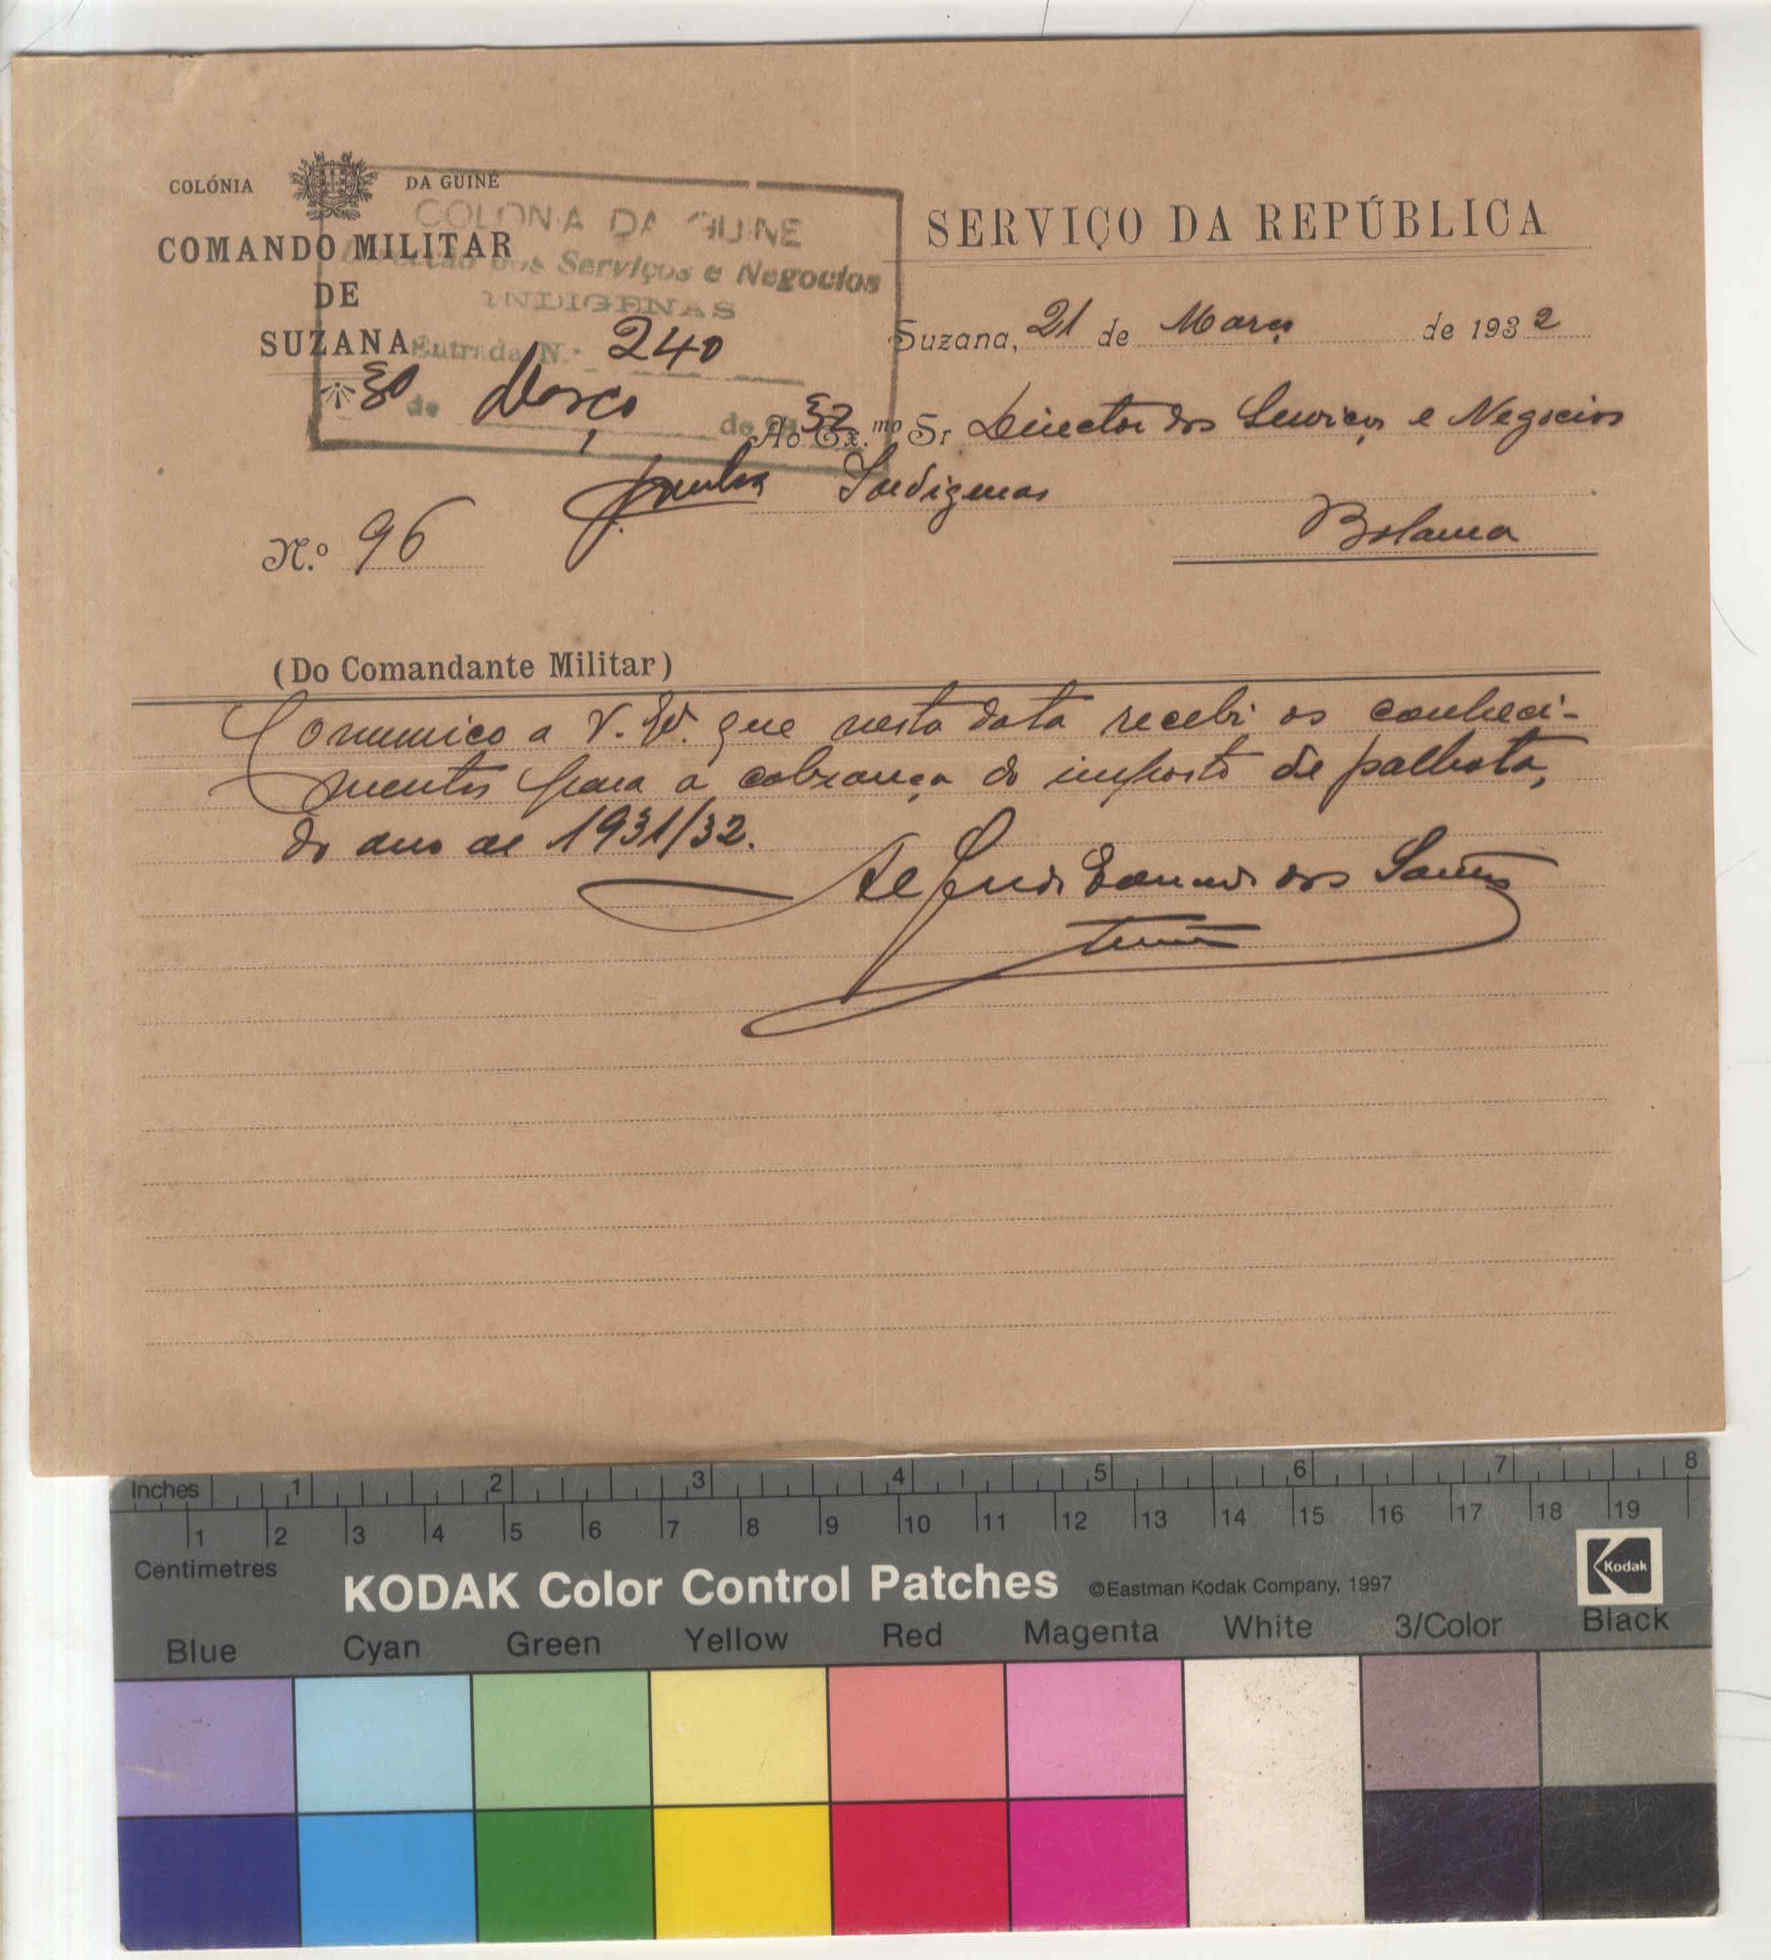 COLÓNIA DA GUINÉ
COMANDO MILITAR
DE
SUZANA
COLONIA DA GUINE
Direcção dos Serviços e Negocios
INDIGENAS
Entrada N.º 240
30 de Março de 1932
SERVIÇO DA REPÚBLICA
Suzana, 21 de Março de 1932
Ao Ex.mo Sr Director dos Serviços e Negocios
Indigenas
Bolama
N.º 96
(Do Comandante Militar)
Comunico a V. Ex.ª que nesta data recebi os conheci-
mentos para a cobrança do imposto de palhota,
do ano de 1931/32.
dos Santos
Inches 1 2 3 4 5 6 7 8
1 2 3 4 5 6 7 8 9 10 11 12 13 14 15 16 17 18 19
Centimetres
KODAK Color Control Patches ©Eastman Kodak Company, 1997
Kodak
Blue Cyan Green Yellow Red Magenta White 3/Color Black